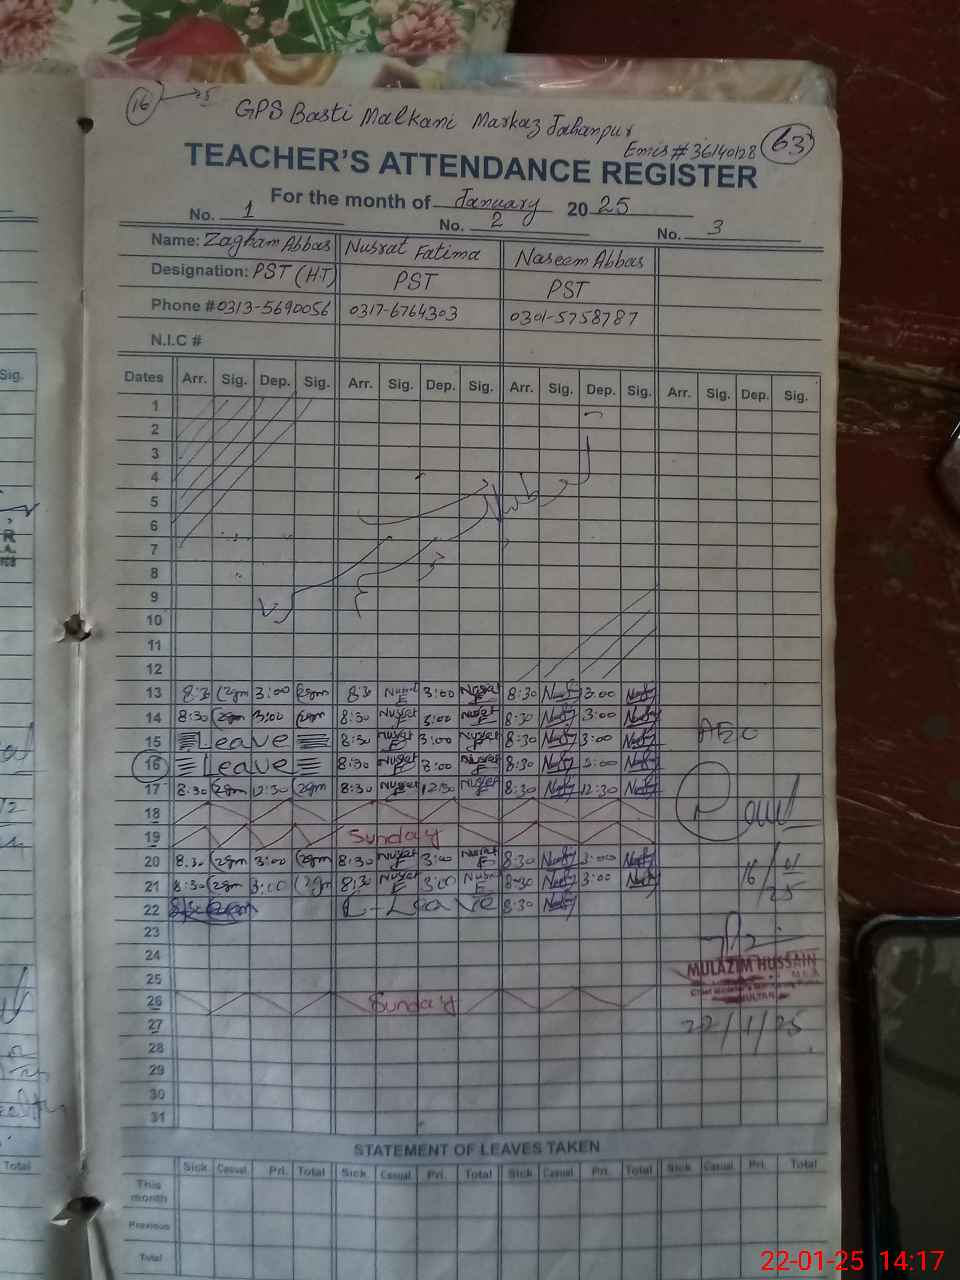 16 5
GPS Basti Malkani Markaz Jahanpur
Emis # 36140128 63
TEACHER'S ATTENDANCE REGISTER
For the month of January 2025
No. 1 No. 2 No. 3
Name: Zagham Abbas Nusrat Fatima Naseem Abbas
Designation: PST (H.T) PST PST
Phone # 0313-5690056 0317-6764303 0301-5758787
N.I.C #
Dates Arr. Sig. Dep. Sig. Arr. Sig. Dep. Sig. Arr. Sig. Dep. Sig. Arr. Sig. Dep. Sig.
1
2
3
4
5
6
7
8
9
10
11
12
13 8:30 3:00 8:30 Nusrat 3:00 Nusrat 8:30 3:00
14 8:30 3:00 8:30 Nusrat 3:00 Nusrat 8:30 3:00
15 Leave 8:30 Nusrat 3:00 Nusrat 8:30 3:00 AEO
16 Leave 8:30 Nusrat 3:00 Nusrat 8:30 3:00
17 8:30 12:30 8:30 Nusrat 12:30 Nusrat 8:30 12:30
18
19 Sunday
20 8:30 3:00 8:30 Nusrat 3:00 Nusrat 8:30 3:00
21 8:30 3:00 8:30 Nusrat 3:00 Nusrat 8:30 3:00 16/01/25
22 C-Leave 8:30
23
24
MULAZIM HUSSAIN
25
MULTAN
26 Sunday
27 22/1/25
28
29
30
31
STATEMENT OF LEAVES TAKEN
Sick Casual Pri. Total Sick Casual Pri. Total Sick Casual Pri. Total Sick Casual Pri. Total
This month
Previous
Total
22-01-25 14:17